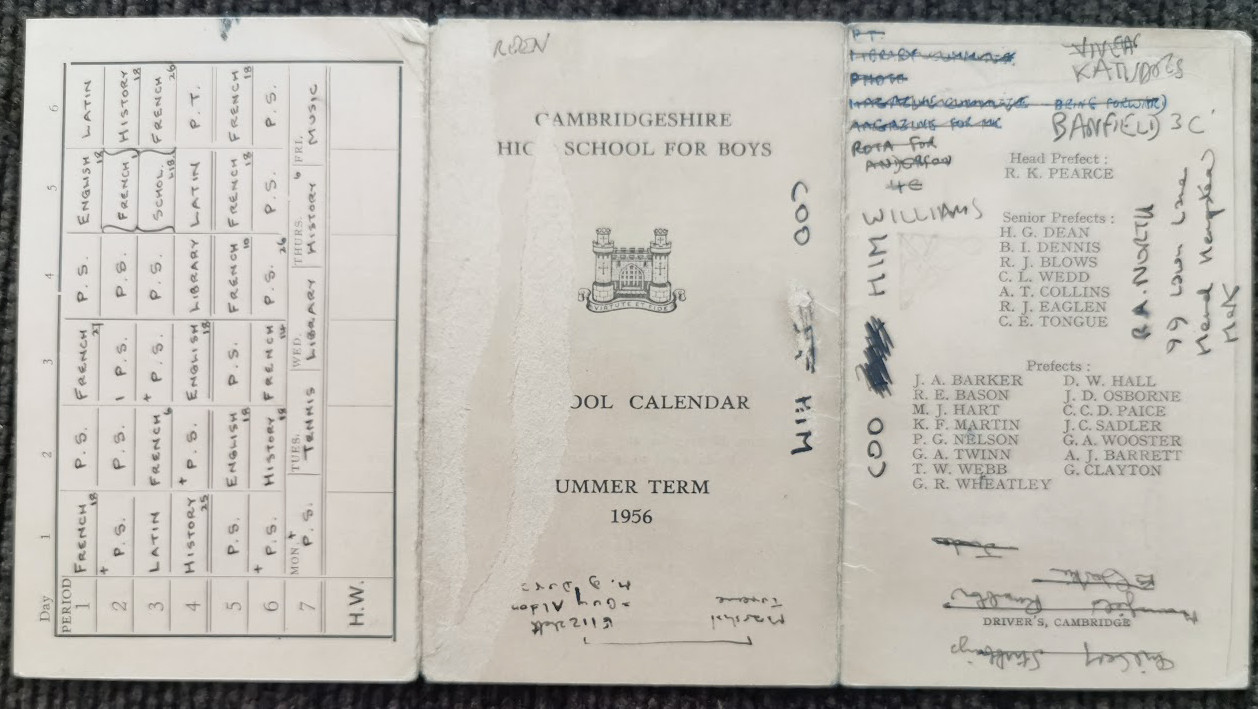 Day 1 2 3 4 5 6
PERIOD
1 FRENCH 18 P.S. FRENCH 27 P.S. ENGLISH 18 LATIN
2 + P.S. P.S. 1 P.S. P.S. FRENCH HISTORY 18
3 LATIN FRENCH 6 + P.S. P.S. SCHOL. FRENCH 26
4 HISTORY 25 + P.S. ENGLISH 18 LIBRARY LATIN P.T.
5 P.S. ENGLISH 18 P.S. FRENCH 10 FRENCH 18 FRENCH 18
6 + P.S. HISTORY 18 FRENCH P.S. 26 P.S. P.S.
MON. TUES. WED. THURS. FRI.
7 + P.S. TENNIS LIBRARY HISTORY 6 MUSIC
H.W.
CAMBRIDGESHIRE
HIG SCHOOL FOR BOYS
VIRTUTE ET FIDE
OOL CALENDAR
UMMER TERM
1956
COO
HIM
Marshal
Elizabeth
Guy Aldon
P.T.
PHOTO
MAGAZINE FOR
ROTA FOR
4C
BRING FORWARD
BANFIELD 3C
WILLIAMS
COO HIM
Head Prefect :
R. K. PEARCE
Senior Prefects :
H. G. DEAN
B. I. DENNIS
R. J. BLOWS
C. L. WEDD
A. T. COLLINS
R. J. EAGLEN
C. E. TONGUE
R.A. NORTH
99 Lawn Lane
Hemel Hempstead
Prefects :
J. A. BARKER D. W. HALL
R. E. BASON J. D. OSBORNE
M. J. HART C. C. D. PAICE
K. F. MARTIN J. C. SADLER
P. G. NELSON G. A. WOOSTER
G. A. TWINN A. J. BARRETT
T. W. WEBB G. CLAYTON
G. R. WHEATLEY
DRIVER'S, CAMBRIDGE